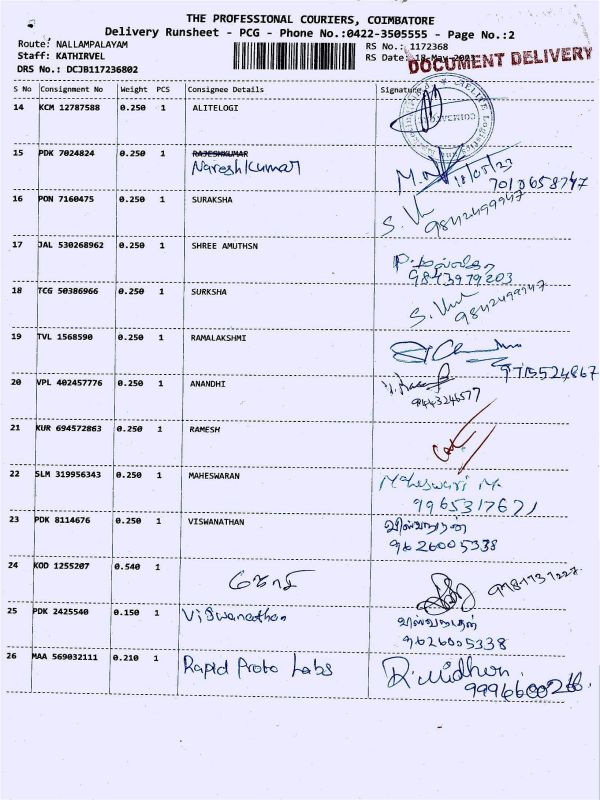 THE PROFESSIONAL COURIERS, COIMBATORE
Delivery Runsheet - PCG - Phone No.:0422-3505555 - Page No.:2
Route: NALLAMPALAYAM RS No.: 1172368
Staff: KATHIRVEL RS Date: 18-May-2023
DRS No.: DCJB117236802 DOCUMENT DELIVERY
S No Consignment No Weight PCS Consignee Details Signature
14 KCM 12787588 0.250 1 ALITELOGI
COIMBATORE
15 PDK 7024824 0.250 1 RAJESHKUMAR
Nareshkumar 18/05/23
7010658747
16 PON 7160475 0.250 1 SURAKSHA
9842499947
17 JAL 530268962 0.250 1 SHREE AMUTHSN
9843979203
18 TCG 50386966 0.250 1 SURKSHA
9842499947
19 TVL 1568590 0.250 1 RAMALAKSHMI
9715524867
20 VPL 402457776 0.250 1 ANANDHI
9443246577
21 KUR 694572863 0.250 1 RAMESH
22 SLM 319956343 0.250 1 MAHESWARAN Maheswari M.
9965317671
23 PDK 8114676 0.250 1 VISWANATHAN
9626005338
24 KOD 1255207 0.540 1
25 PDK 2425540 0.150 1 Viswanathan
9626005338
26 MAA 569032111 0.210 1 Rapid Proto Labs R. Midhun.